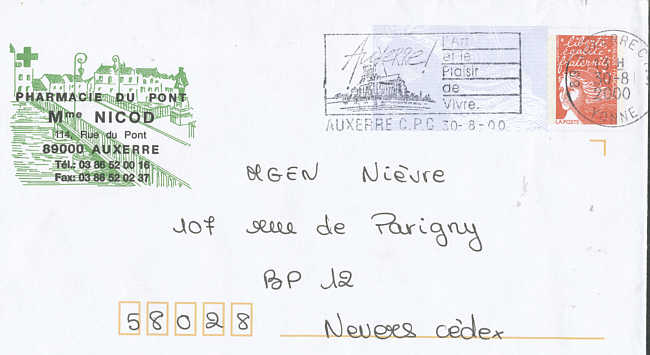 PHARMACIE DU PONT
Mme NICOD
114, Rue du Pont
89000 AUXERRE
Tél.: 03 86 52 00 16
Fax: 03 86 52 02 37
Auxerre!
L'Art
et le
Plaisir
de
Vivre.
AUXERRE C.P.C 30-8-00
liberté
égalité
fraternité
LA POSTE
30-8
YONNE
MGEN Nièvre
107 rue de Parigny
BP 12
58028 Nevers cédex